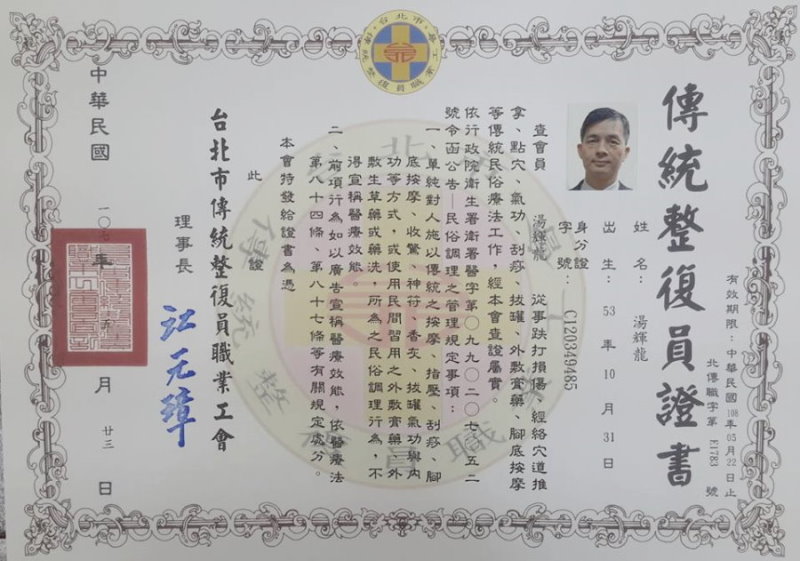 台北市傳統整復員職業工會
傳統整復員證書
有效期限：中華民國108年05月22日止
北傳職字第 E1783 號
姓名：湯輝龍
出生：53年10月31日
身分證字號：C120349485
查會員 湯輝龍 從事跌打損傷、經絡穴道推
拿、點穴、氣功、刮痧、拔罐、外敷膏藥、腳底按摩
等傳統民俗療法工作，經本會查證屬實。
依行政院衛生署衛署醫字第○九九○二○七○五二
號令函公告—民俗調理之管理規定事項：
一、單純對人施以傳統之按摩、指壓、刮痧、腳
底按摩、收驚、神符、香灰、拔罐氣功與內
功等方式，或使用民間習用之外敷膏藥、外
敷生草藥或藥洗，所為之民俗調理行為，不
得宣稱醫療效能。
二、前項行為如以廣告宣稱醫療效能，依醫療法
第八十四條、第八十七條等有關規定處分。
本會特發給證書為憑
此證
台北市傳統整復員職業工會
理事長 江元璋
中華民國一○七年五月廿三日